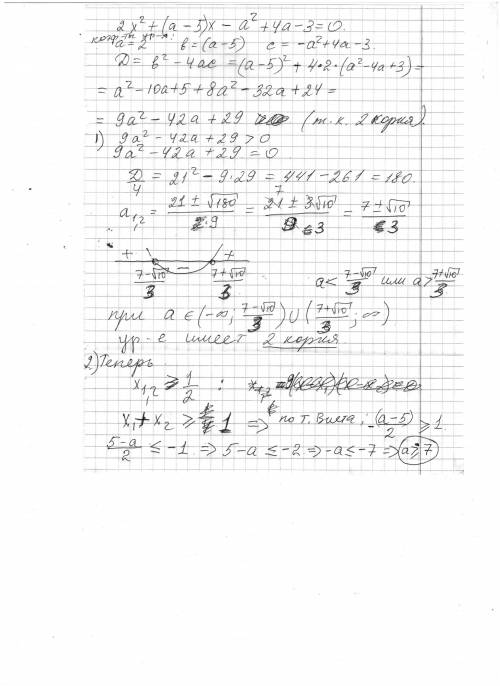 2x² + (a-5)x - a² + 4a - 3 = 0.
a = 2 b = (a-5) c = -a² + 4a - 3.
D = b² - 4ac = (a-5)² + 4·2·(a² - 4a + 3) =
= a² - 10a + 5 + 8a² - 32a + 24 =
= 9a² - 42a + 29 (т.к. 2 корня).
1) 9a² - 42a + 29 > 0
9a² - 42a + 29 = 0
D/4 = 21² - 9·29 = 441 - 261 = 180.
a₁,₂ = (21 ± √180)/9 = (21 ± 3√10)/9 = (7 ± √10)/3
+ - +
(7-√10)/3 (7+√10)/3 a < (7-√10)/3 или a > (7+√10)/3
при a ∈ (-∞; (7-√10)/3) ∪ ((7+√10)/3; ∞)
ур-е имеет 2 корня
2) Теперь
x₁,₂ ≥ 1/2 :
x₁ + x₂ ≥ 1 => по т. Виета: -(a-5)/2 ≥ 1.
(5-a)/2 ≤ -1 => 5-a ≤ -2 => -a ≤ -7 => a ≥ 7